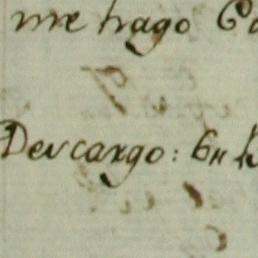 me hago Ca
Descargo: En l